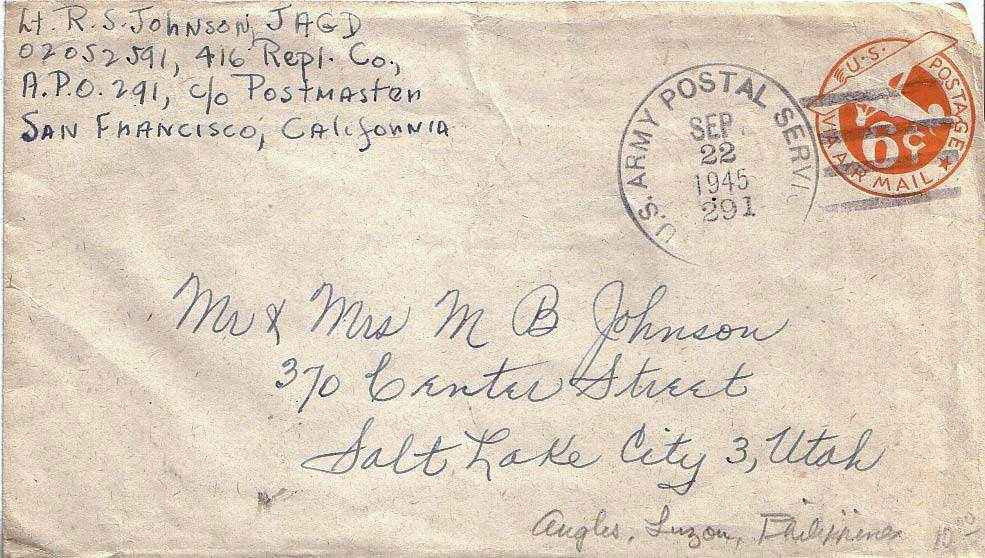 Lt. R. S. Johnson, JAGD
02052591, 416 Repl. Co.,
A.P.O. 291, c/o Postmaster
San Francisco, California
U.S. ARMY POSTAL SERVI
SEP
22
1945
291
U.S. POSTAGE
6¢
VIA AIR MAIL
Mr & Mrs M B Johnson
370 Center Street
Salt Lake City 3, Utah
Angles, Luzon, Philippines
10.00